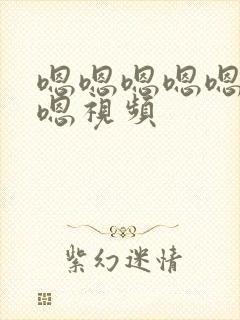 嗯嗯嗯嗯嗯
嗯視頻
紫幻迷情